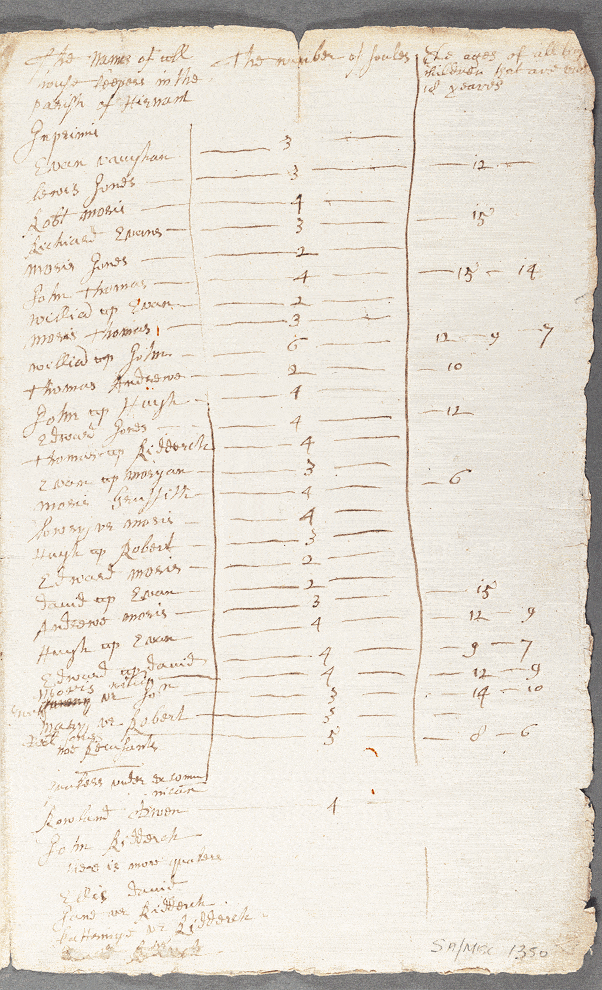 The names of all The number of soules The ages of all
house keepers in the children that are
parish of Hirnant 18 yeares
Inprimis
Evan vaughan 3
Lewis Jones 3 12
Robt moris 4
Richard Evans 3 15
moris Jones 2
John Thomas 4 15 14
William ap Evan 2
moris Thomas 3
William ap John 6 12 9 7
Thomas Andrewe 2 10
John ap Hugh 4
Edward Jones 4 12
Thomas ap Ridderch 4
Evan ap morgan 3
moris Gruffith 4 6
Lowry vz moris 4
Hugh ap Robert 3
Edward moris 2
david ap Evan 2
Andrewe moris 3 15
Hugh ap Evan 4 12 9
Edward ap david 4 9 7
moris
vz Jon 4 12 9
mary vz Robert 3 14 10
3
noe Recusants 5 8 6
quakers under excommu
nicacon
Rowland Owen 4
John Ridderch
here is more quakers
Ellis david
Jane vz Ridderch
vz Ridderch
SA/MISC 1350